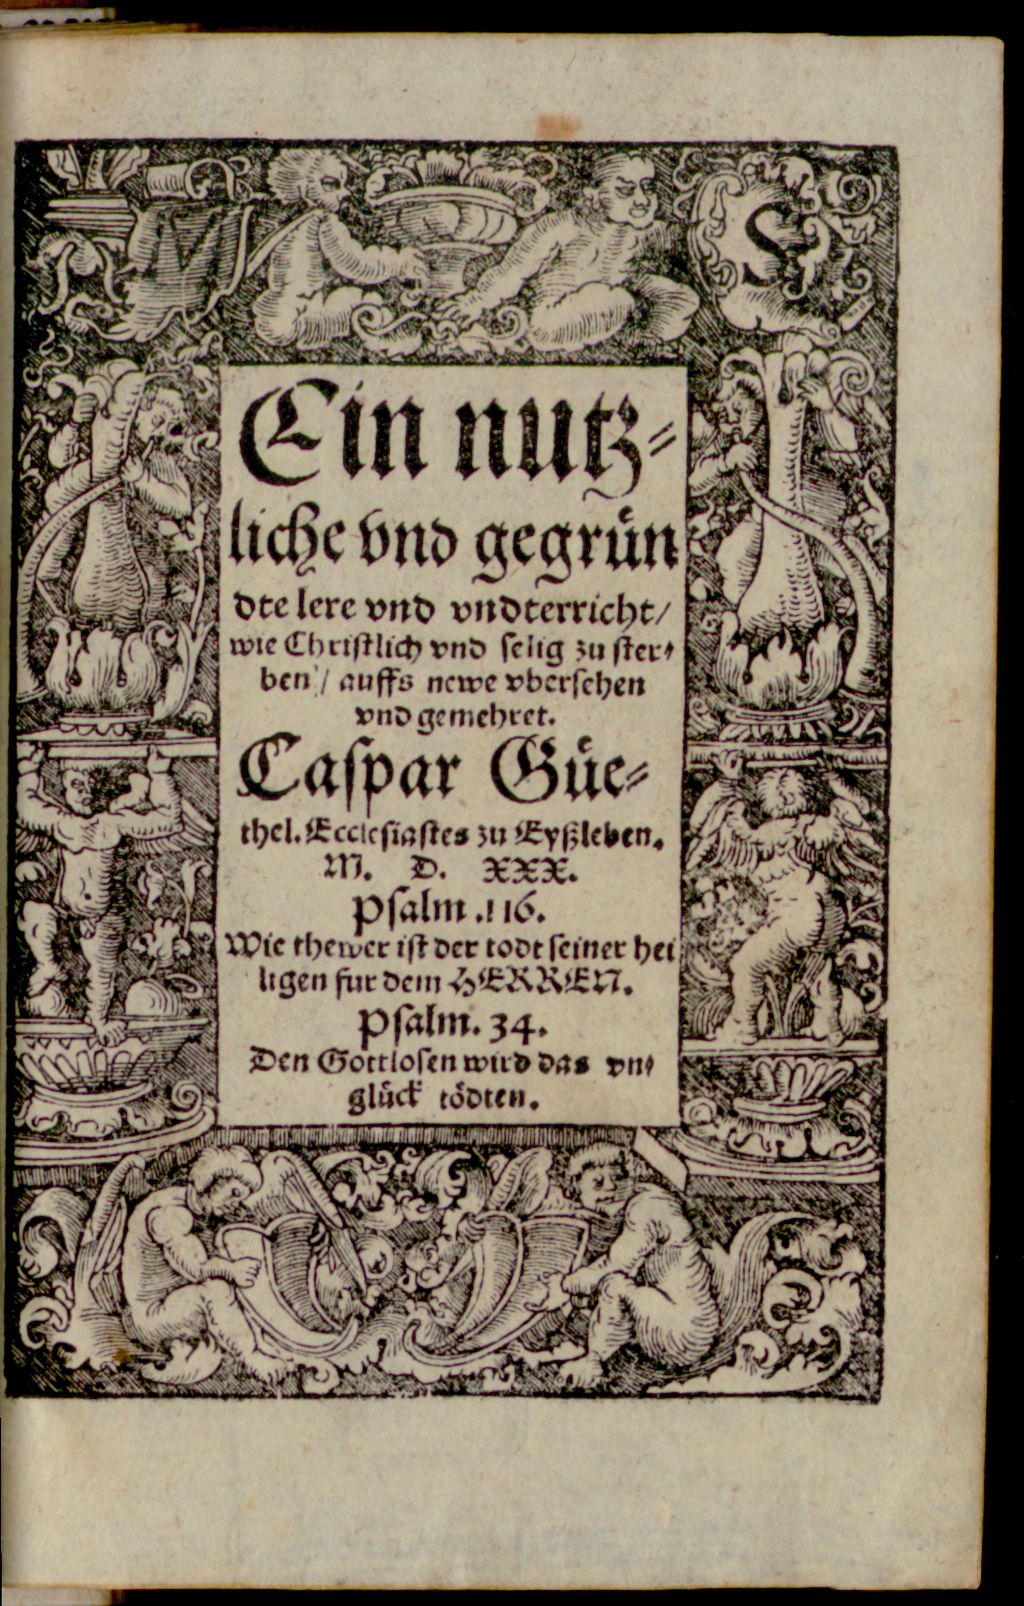 M S
Ein nutz⸗
liche vnd gegruͤn
dte lere vnd vndterricht/
wie Christlich vnd selig zu ster⸗
ben / auffs newe vbersehen
vnd gemehret.
Caſpar Guͤe⸗
thel. Ecclesiastes zu Eyßleben.
M. D. XXX.
Psalm .116.
Wie thewer ist der todt seiner hei
ligen fur dem HERREN.
Psalm. 34.
Den Gottlosen wird das vn⸗
gluͤck toͤdten.